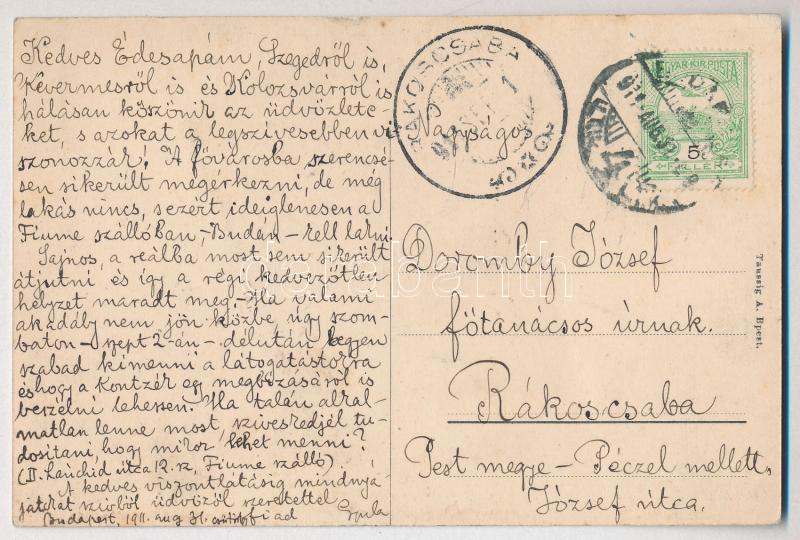 Kedves Édesapám, Szegedről is,
Kevermesről is és Kolozsvárról is
hálásan köszönir az üdvözlete-
ket, s azokat a legszivesebben vi
szonozzár! A fővárosba szerencsé-
sen sikerült megérkezni, de még
lakás nincs, s ezért ideiglenesen a
Fiume szállóban, -Budán- kell lakni.
Sajnos, a reálba most sem sikerült
átjutni és így a régi kedvezőtlen
helyzet maradt meg. - Ha valami
akadály nem jön közbe úgy szom-
baton - szept 2-án - délután
szabad kimenni a látogatásra
és hogy a Kontzér megbizásáról is
beszélni lehessen. Ha talán alkal-
matlan lenne most, sziveskedjél tu-
dositani, hogy mikor lehet menni?
(II. Lánchid utca 12. sz, Fiume szálló)
A kedves viszontlátásig mindnyá-
játokat szivből üdvözöl szeretettel
Budapest, 1911. aug 31. fiad Gyula
RÁKOSCSABA
Nagyságos
MAGYAR KIR. POSTA
FILLÉR
Doromby József
főtanácsos úrnak.
Rákoscsaba
Pest megye - Péczel mellett,
József utca.
Taussig A. Bpest.
darabanth